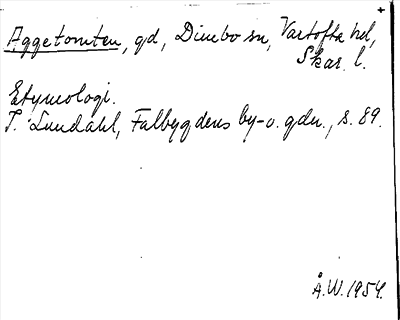 Aggetomten, gd, Dimbo sn, Vartofta hd,
Skar. l.
Etymologi.
I. Lundahl, Falbygdens by- o. gdn., s. 89.
Å.W. 1954.